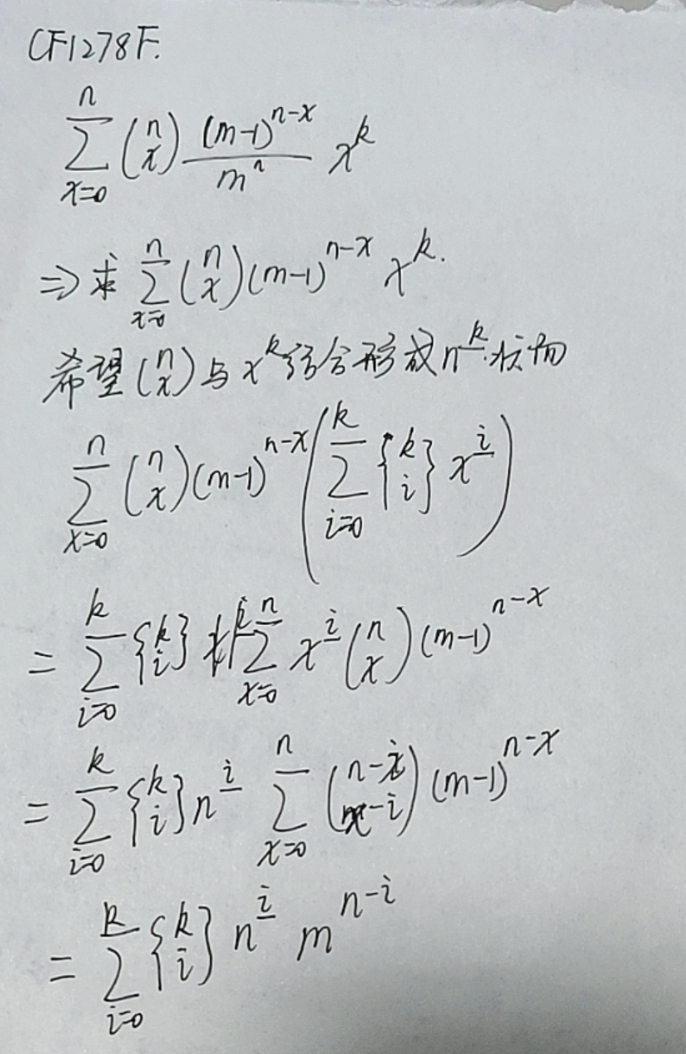 CF1278F.
\sum_{x=0}^{n} \binom{n}{x} \frac{(m-1)^{n-x}}{m^n} x^k
⇒ 求 \sum_{x=0}^{n} \binom{n}{x} (m-1)^{n-x} x^k.
希望 \binom{n}{x} 与 x^k 结合形成 n^{\underline{k}}
\sum_{x=0}^{n} \binom{n}{x} (m-1)^{n-x} \left( \sum_{i=0}^{k} {k \brace i} x^{\underline{i}} \right)
= \sum_{i=0}^{k} {k \brace i} \sum_{x=0}^{n} x^{\underline{i}} \binom{n}{x} (m-1)^{n-x}
= \sum_{i=0}^{k} {k \brace i} n^{\underline{i}} \sum_{x=0}^{n} \binom{n-i}{x-i} (m-1)^{n-x}
= \sum_{i=0}^{k} {k \brace i} n^{\underline{i}} m^{n-i}